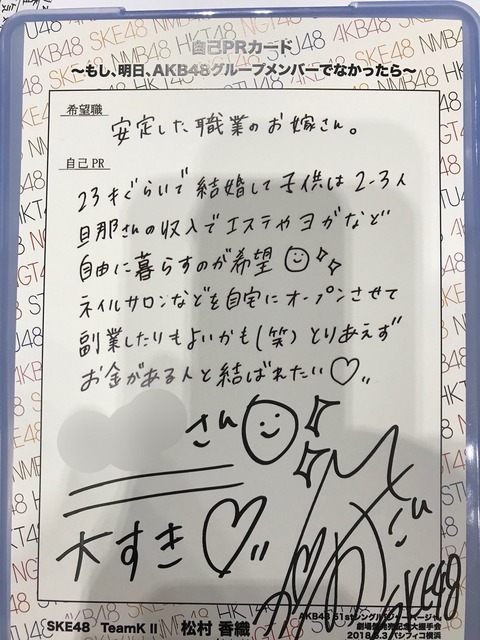 自己PRカード
～もし、明日、AKB48グループメンバーでなかったら～
希望職
安定した職業のお嫁さん。
自己PR
23才ぐらいで結婚して子供は2-3人
旦那さんの収入でエステやヨガなど
自由に暮らすのが希望
ネイルサロンなどを自宅にオープンさせて
副業したりもよいかも(笑)とりあえず
お金がある人と結ばれたい♡
さん
大すき♡
SKE48
SKE48 TeamK II 松村 香織
AKB48 51stシングル「ジャーバージャ」
劇場盤発売記念大握手会
2018.3.3 パシフィコ横浜